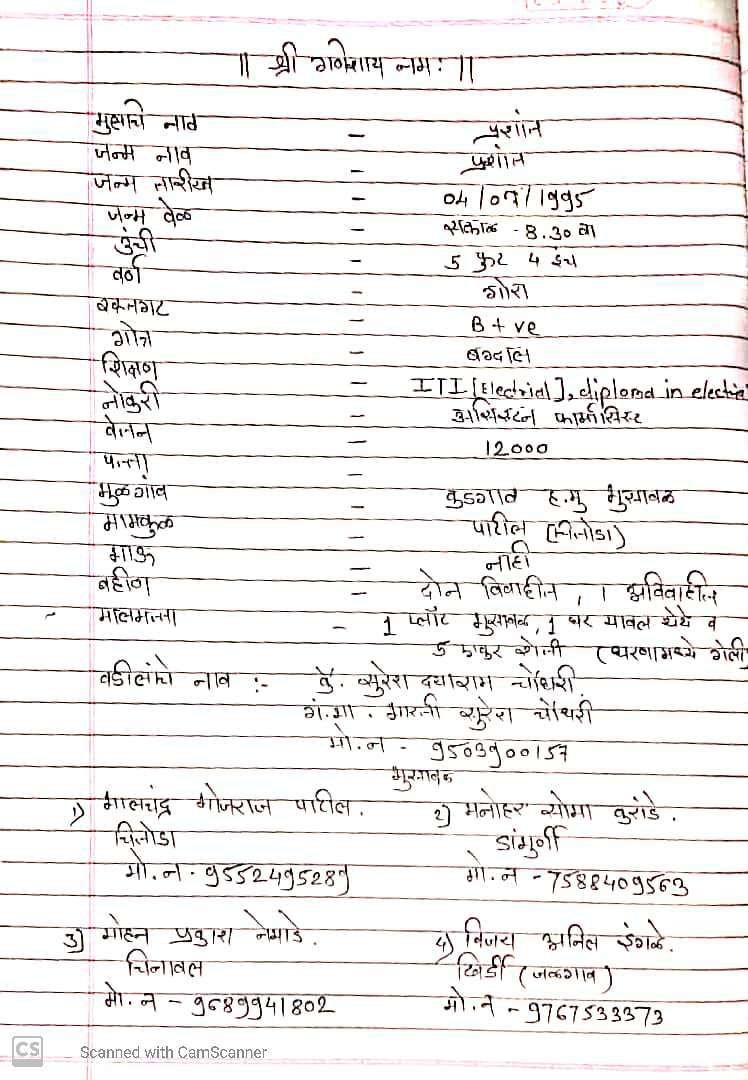 ॥ श्री गणेशाय नमः ॥
मुलाचे नाव – प्रशांत
जन्म नाव – प्रशांत
जन्म तारीख – 04/07/1995
जन्म वेळ – सकाळ - 8.30 वा
उंची – 5 फुट 4 इंच
वर्ण – गोरा
रक्तगट – B + ve
गोत्र –
शिक्षण – ITI [Electrial], diploma in electrial
नोकरी – असिस्टंन फार्मासिस्ट
वेतन – 12000
पत्ता –
मुळगांव – कुडगाव ह.मु भुसावळ
मामकुळ – पाटील (चितोडा)
भाऊ – नाही
बहीण – दोन विवाहीत, 1 अविवाहीत
मालमत्ता – 1 प्लॉट भुसावळ, 1 घर यावल येथे व
5 एकर शेती (धरणामध्ये गेली
वडीलांचे नाव :- कै. सुरेश दयाराम चौधरी
गं.भा. भारती सुरेश चौधरी
मो.न - 9503900157
भुसावळ
1) भालचंद्र भोजराज पाटील. 2) मनोहर सोमा कुरांडे.
चितोडा डांभुर्णी
मो.न - 9552495289 मो.न - 7588409563
3) मोहन प्रकाश नेमाडे. 4) विजय अनिल इंगळे.
चिनावल खिर्डी (जळगाव)
मो.न - 9689941802 मो.न - 9767533373
CS Scanned with CamScanner